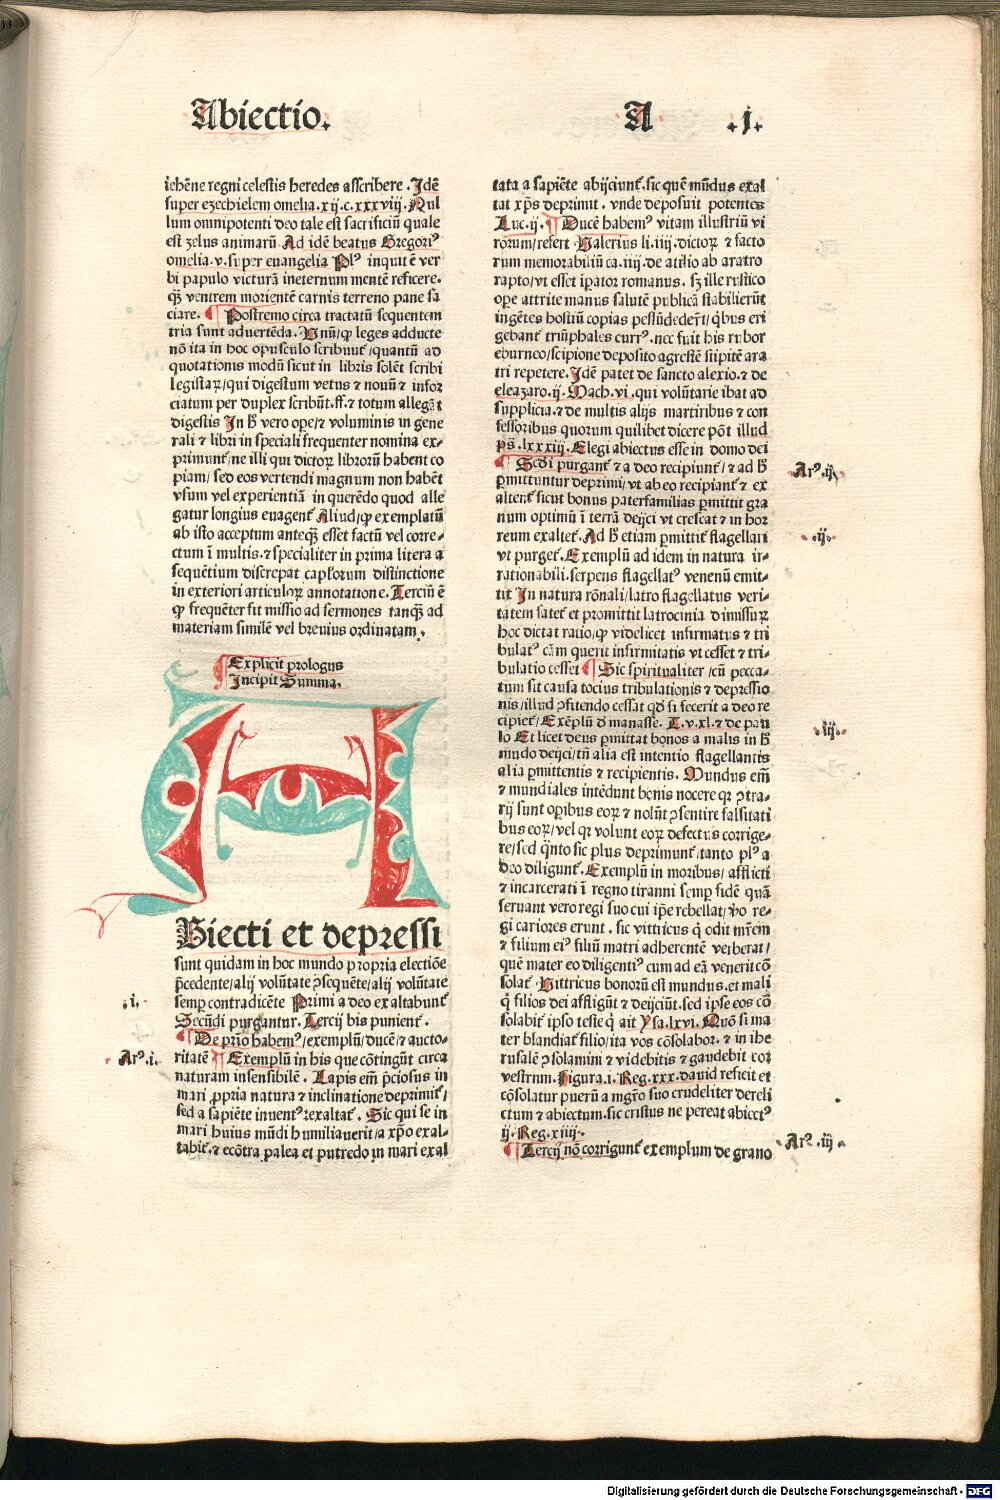 Abiectio.
A .j.
ichēne regni celestis heredes asscribere . Idē
super ezechielem omelia.xij.c.xxxviij. Nul
lum omnipotenti deo tale est sacrificiū quale
est zelus animarū . Ad idē beatus Gregoriꝰ
omelia.v.super euangelia Plꝰ inquit ē ver
bi papulo victurā ineternum mentē reficere.
q̈ȝ ventrem morientē carnis terreno pane sa
ciare. ¶ Postremo circa tractatū sequentem
tria sunt aduertēda. Unū/ꝙ leges adducte
nō ita in hoc opusculo scribunt̄ /quantū ad
quotationis modū sicut in libris solēt scribi
legistaꝝ/qui digestum vetus ⁊ nouū ⁊ infor
ciatum per duplex scribūt.ff.⁊ totum allegāt
digestis In h̄ vero ope/⁊ voluminis in gene
rali ⁊ libri in speciali frequenter nomina ex⸗
primunt̄/ne illi qui dictoꝝ librorū habent co
piam/ sed eos vertendi magnum non habēt
vsum vel experientiā in querēdo quod alle
gatur longius euagent̄ Aliud/ꝙ exemplatū
ab isto acceptum anteq̈ȝ esset factū vel corre⸗
ctum ī multis.⁊ specialiter in prima litera a
sequētium discrepat capl'orum distinctione
in exteriori articuloꝝ annotatione. Terciū ē
ꝙ frequēter fit missio ad sermones tanq̈ȝ ad
materiam similē vel breuius ordinatam .
¶ Explicit prologus
Incipit Summa.
A
Biecti et depressi
sunt quidam in hoc mundo propria electiōe
p̄cedente/alij volūtate ꝓsequēte/alij volūtate
semꝑ contradicēte Primi a deo exaltabunt̄
.i.
Secūdi purgantur. Tercij bis punient̄ .
¶ De prīo habemꝰ/exemplū/ducē/⁊ aucto⸗
ritatē ¶ Exemplū in his que cōtingūt circa
Arꝰ.i.
naturam insensibilē . Lapis em̄ p̄ciosus in
mari ꝓpria natura ⁊ inclinatione deprimit̄/
sed a sapiēte inuent̓ꝰ ⁊exaltat̄ . Sic qui se in
mari huius mūdi humiliauerit/a xp̄o exal⸗
tabit̄.⁊ ecōtra palea et putredo in mari exal
tata a sapiēte abijciunt̄.sic quē mūdus exal
tat xp̄s deprimit . vnde deposuit potentes
Luc.ij. ¶ Ducē habemꝰ vitam illustriū vi
rorum/refert Valerius li.iiij.dictoꝝ ⁊ facto
rum memorabiliū ca.iiij.de atilio ab aratro
rapto/vt esset īpator romanus. sȝ ille rustico
oꝑe attrite manus salutē publicā stabilierūt
ingētes hostiū copias pessūdeder̄t/ q̄bus eri
gebant̄ triūphales currꝰ. nec fuit his rubor
eburneo/scipione deposito agrestē stipitē ara
tri repetere. Idē patet de sancto alexio.⁊ de
eleazaro.ij. Mach.vi.qui volūtarie ibat ad
supplicia.⁊ de multis alijs martiribus ⁊ con
fessoribus quorum quilibet dicere pōt illud
ps̄.lxxxiij. Elegi abiectus esse in domo dei
¶ Scd̄i purgant̄ ⁊ a deo recipiunt̄/⁊ ad h̄
Arꝰ.ij.
ꝑmittuntur deprimi/vt ab eo recipiant̄ ⁊ ex
altent̄ sicut bonus paterfamilias ꝑmittit gra
num optimū ī terrā deijci vt crescat ⁊ in hor
reum exaltet̄. Ad h̄ etiam ꝑmittit̄ flagellari
.ij.
vt purget̄. Exemplū ad idem in natura ir⸗
rationabili.serpens flagellatꝰ venenū emit⸗
tit In natura rōnali/latro flagellatus veri⸗
tatem fatet̄ et promittit latrocinia dimissuꝝ
hoc dictat ratio/ꝙ videlicet infirmatus ⁊ tri
bulatꝰ cām querit infirmitatis vt cesset ⁊ tri⸗
bulatio cesset ¶ Sic spiritualiter /cū pecca⸗
tum sit causa tocius tribulationis ⁊ depressio
nis/illud ꝓfitendo cessat qd̄ si fecerit a deo re
cipiet̄/ Exēplū d̄ manasse. L.v.xl.⁊ de pau
.iij.
lo Et licet deus ꝑmittat bonos a malis in h̄
mundo deijci/tn̄ alia est intentio flagellantis
alia ꝑmittentis ⁊ recipientis. Mundus em̄
⁊ mundiales intēdunt bonis nocere qꝛ ꝯtra⸗
rij sunt oꝑibus eoꝝ ⁊ nolūt ꝯsentire falsitati
bus eoꝝ/vel qꝛ volunt eoꝝ defectus corrige⸗
re/sed q̄nto sic plus deprimunt̄/tanto plꝰ a
deo diligunt̄. Exemplū in moribus/ afflicti
⁊ incarcerati ī regno tiranni semꝑ fidē quā
seruant vero regi suo cui ip̄e rebellat/ v̄o re⸗
gi cariores erunt . sic vittricus q̄ odit mr̄em
⁊ filium eiꝰ filiū matri adherentē verberat/
quē mater eo diligentiꝰ cum ad eā venerit cō
solat̄ Vittricus bonorū est mundus.et mali
q̄ filios dei affligūt ⁊ deijciūt.sed ipse eos cō
solabit̄ ipso teste q̄ ait Ysa.lxvi. Quō si ma
ter blandiat̄ filio/ita vos cōsolabor.⁊ in ihe
rusalē ꝯsolamini ⁊ videbitis ⁊ gaudebit cor
vestrum. Figura.i. Reg.xxx.dauid reficit et
cōsolatur puerū a mgr̄o suo crudeliter dereli
ctum ⁊ abiectum.sic cristus ne pereat abiectꝰ
ij. Reg.xiiij.
¶ Tercij nō corrigunt̄ exemplum de grano
Arꝰ.iij.
Digitalisierung gefördert durch die Deutsche Forschungsgemeinschaft - DFG